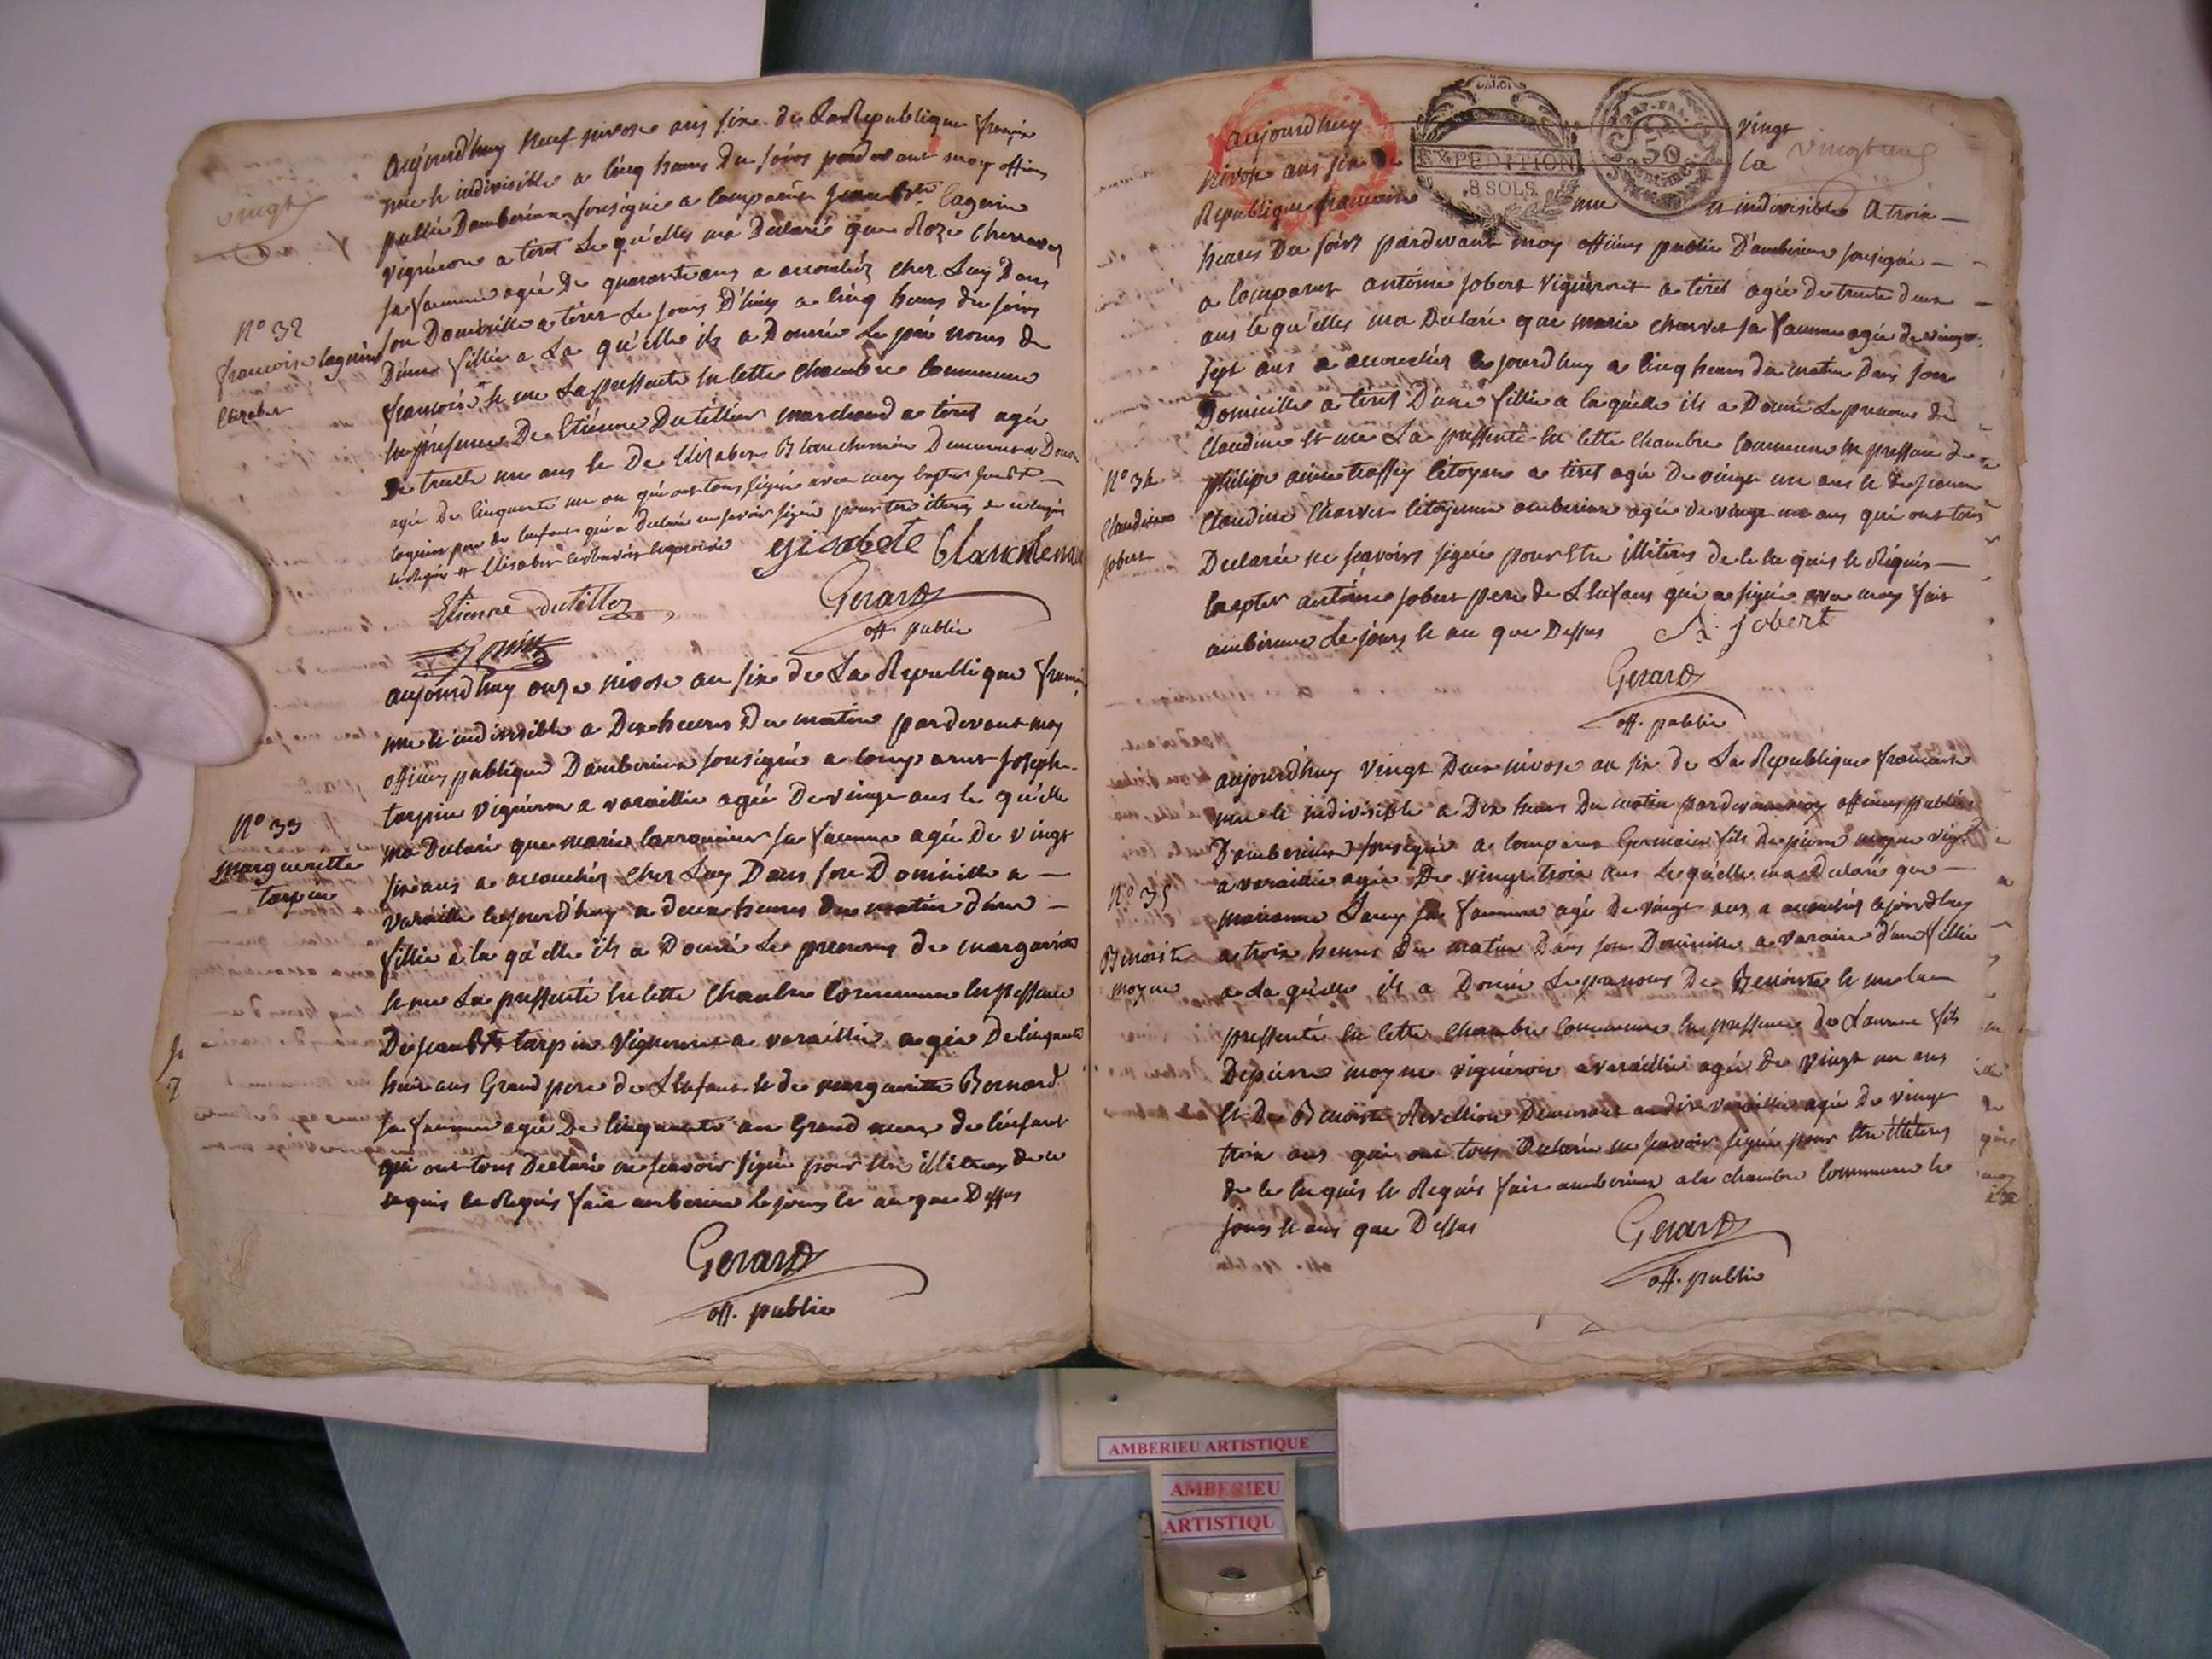 vingt
aujourd'huy neuf nivose ans six de La Republique françoise
une et indivisible a cinq heures du soirs pardevant moy officier
public Damberieux sousigné a comparut jean Bte lagnieu
vignieron a tiret Le qu'elles ma Declaré que Roze
sa famme agée De quarante ans a accouchéz chez Luy Dans
son Domicille a tiret Le jours D'huy a cinq heures du soirs
D'une fillie a La qu'elle ils a Donnée Le pré noms de
françoise et me La pressenté en cette chambre commune
en présence De Etiénne Dutillier marchand a tiret agé
de trente un ans et De Elizabet Blanchemin Demeurant
agée De cinquante un an qui ont tous signée avec moy excepter
lagnieu pere de lenfant qui a declaré ne savoir signé pour etre iliteres de ce enquis
N° 32
francoise lagnieu
Elizabet
Elisabete blanchemin
Etienne dutiller
Gerard
off. public
aujourd'huy onze nivose an six de La Republique
une et indivisible a Dix heures Du matin pardevant moy
officier publique Damberieux sousigné a comparut joseph
tarpin vignéron a varaillie agée De vingt ans le qu'elle
ma Declaré que marie sa famme agée De vingt
six ans a accouchéz chez Luy Dans son Domicille a —
varaille lejourd'huy a deux heures du matin d'une —
fillie a la qu'elle ils a Donné Le prenoms de margueritte
et me La pressenté en cette chambre commune en pressence
De jean Bte tarpin vigneront a varaillie agée De cinquante
huit ans Grand pere de L'enfant et de margueritte Bernard
sa famme agée De cinquante an Grand mere de l'enfant
qui ont tous Declaré ne scavoir signé pour etre illiteres de ce
enquis et Requis fait amberieux le jours et an que Dessus
N° 33
margueritte
tarpin
Gerard
off. public
aujourdhuy vingt
nivose ans six La vingt une
EXPEDITION
8 SOLS.
REP. FRA.
50
Republique francoise une et indivisible A trois —
heures Du soirs pardevant moy officier public D'amberieux sousigné —
a comparut antoine jobert vignéront a tiret agée De trente deux —
ans le qu'elles ma Declaré que marie charvet sa famme agée de vingt
sept ans a accouchéz ajourdhuy a cinq heures du matin Dans son
Domicille a tiret D'une fillie a laquelle ils a Donné Le prenoms de
Claudine et me La pressenté en cette chambre commune en pressence de
philipe aime trassy citoyen a tiret agée De vingt un ans et de jeanne
Claudine Charvet citoyenne amberieux agée de vingt un ans qui ont tous
Declarée ne scavoirs signée pour Etre illitéres de ce en quis et Réquis —
Excepter antoine jobert pere de L'enfans qui a signée avec moy fait
amberieux le jours et an que Dessus
N° 34
Claudine
jobert
A. jobert
Gerard
off. public
aujourdhuy vingt Deux nivose an six de La Republique francoise
une et indivisible a Dix heures Du matin pardevant moy officier public
D'amberieux sousigné a comparut Germain fils de pierre moyne vigr
a varaillie agée De vingt trois ans Le qu'elle ma Declaré que —
marianne sa famme agée De vingt ans a accouchéz ajourdhuy
a trois heures Du matin Dans son Domicille a varaire d'une fillie
a La qu'elle ils a Donné Le prenoms De Benoiste et me la
pressenté en cette chambre commune en pressence de Laurent fils
De pierre moyne vignéron a varaillie agée De vingt un ans
Et De Benoiste Revellion Demeurant audit varaille agée De vingt
trois ans qui ont tous Declarée ne scavoir signée pour Etre illiteres
de ce enquis et Requis fait amberieux a la chambre commune le
jours et ans que Dessus
N° 35
Benoiste
moyne
Gerard
off. public
AMBERIEU ARTISTIQUE
AMBERIEU
ARTISTIQU